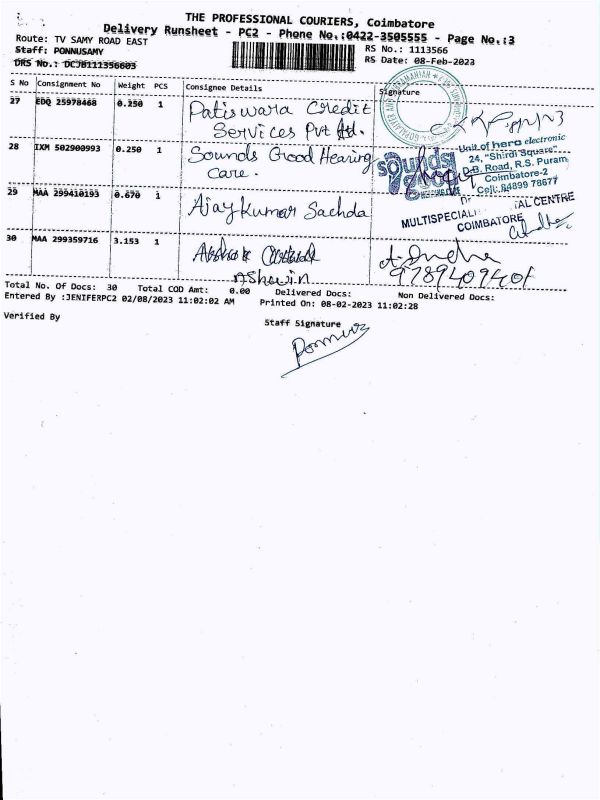 THE PROFESSIONAL COURIERS, Coimbatore
Delivery Runsheet - PC2 - Phone No.:0422-3505555 - Page No.:3
Route: TV SAMY ROAD EAST
RS No.: 1113566
Staff: PONNUSAMY
RS Date: 08-Feb-2023
DRS No.: DCJB111356603
S No Consignment No Weight PCS Consignee Details Signature
27 EDQ 25978468 0.250 1 Patiswara Credit
Services Pvt ltd.
28 IXM 502900993 0.250 1 Sounds Good Hearing
Care.
sounds good
Unit of hero electronic
24, "Shirdi Square"
D.B. Road, R.S. Puram,
Coimbatore-2
Cell: 84899 78677
29 MAA 299410193 0.670 1 Ajay Kumar Sachda
MULTISPECIAL AL CENTRE
COIMBATORE
30 MAA 299359716 3.153 1
Ashwin
9789409401
Total No. Of Docs: 30 Total COD Amt: 0.00 Delivered Docs: Non Delivered Docs:
Entered By :JENIFERPC2 02/08/2023 11:02:02 AM Printed On: 08-02-2023 11:02:28
Verified By
Staff Signature